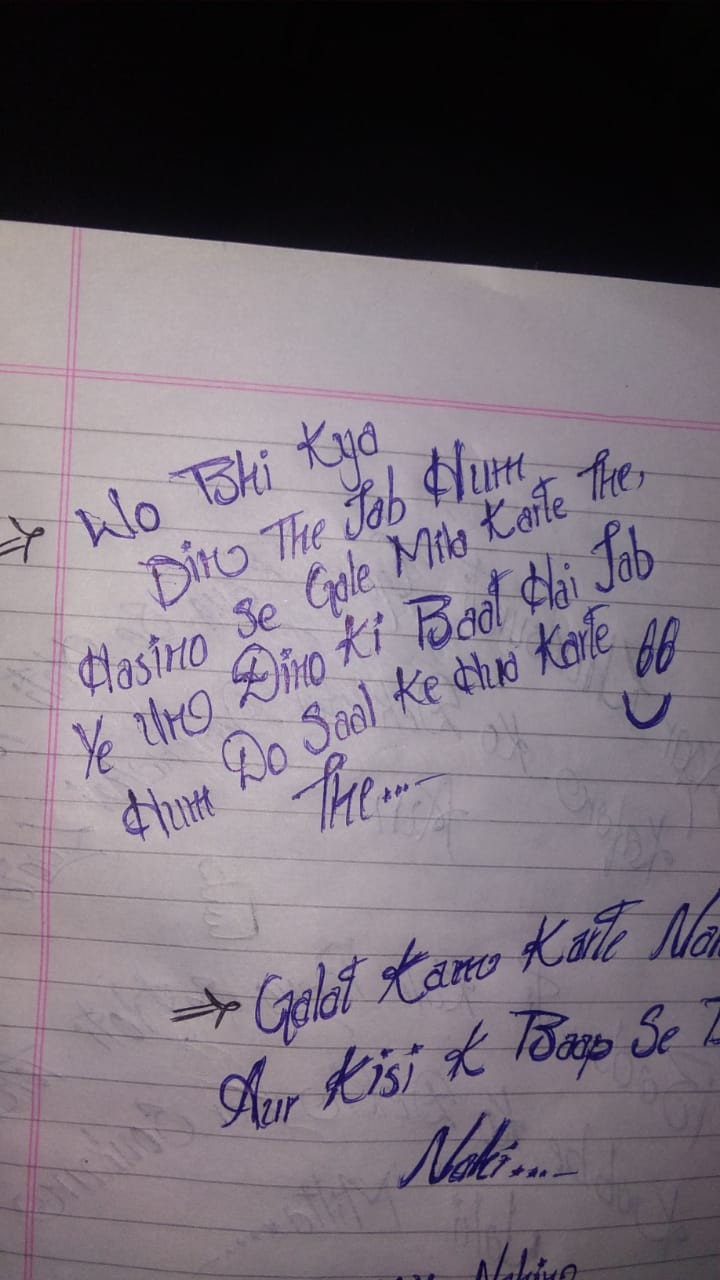 ⇒ Wo Bhi Kya
Dino The Jab Hum
Hasino Se Gale Mila Karte The,
Ye Uno Dino Ki Baat Hai Jab
Hum Do Saal Ke Hua Karte
The....
⇒ Galat Kamo Karte Nahi
Aur Kisi K Baap Se
Nahi....